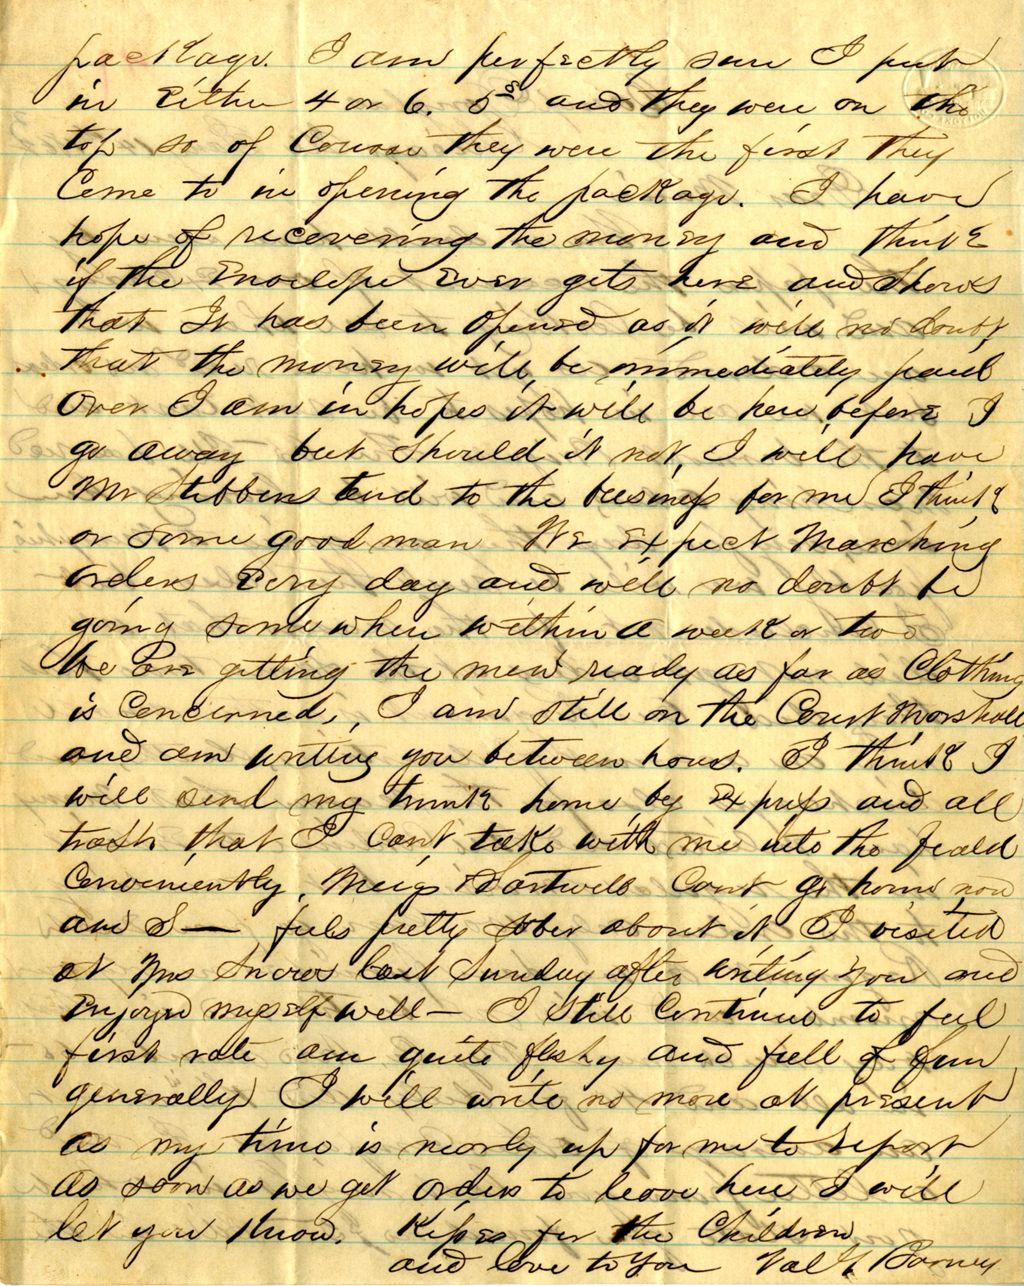 package. I am perfectly sure I put
in Either 4 or 6. 5s and they were on the
top so of Course they were the first they
Come to in opening the package. I have
hope of recovering the money and think
if the Envelope Ever gets here and Shows
that It has been opened as it will no doubt,
that the money will be immediately paid
over I am in hopes it will be here before I
go away but Should it not, I will have
Mr Stebbens tend to the business for me I think
or some good man We Expect Marching
orders Evry day and will no doubt be
going some where within a week or two
We are getting the men ready as far as Clothing
is Concerned, I am still on the Court Marshall
and am writing you between hours. I think I
will send my trunk home by Express and all
trash that I Cant take with me into the field
Conveniently. Meigs Hartwell Cant go home now
and S— feels pretty sober about it I visited
at Mrs Snows last Sunday after writing you and
Enjoyed myself well— I still Continue to feel
first rate am quite fleshy and full of fun
generally I will write no more at present
as my time is nearly up for me to report
As soon as we get orders to leave here I will
let you know. Kisses for the Children
and love to you Val G Barney